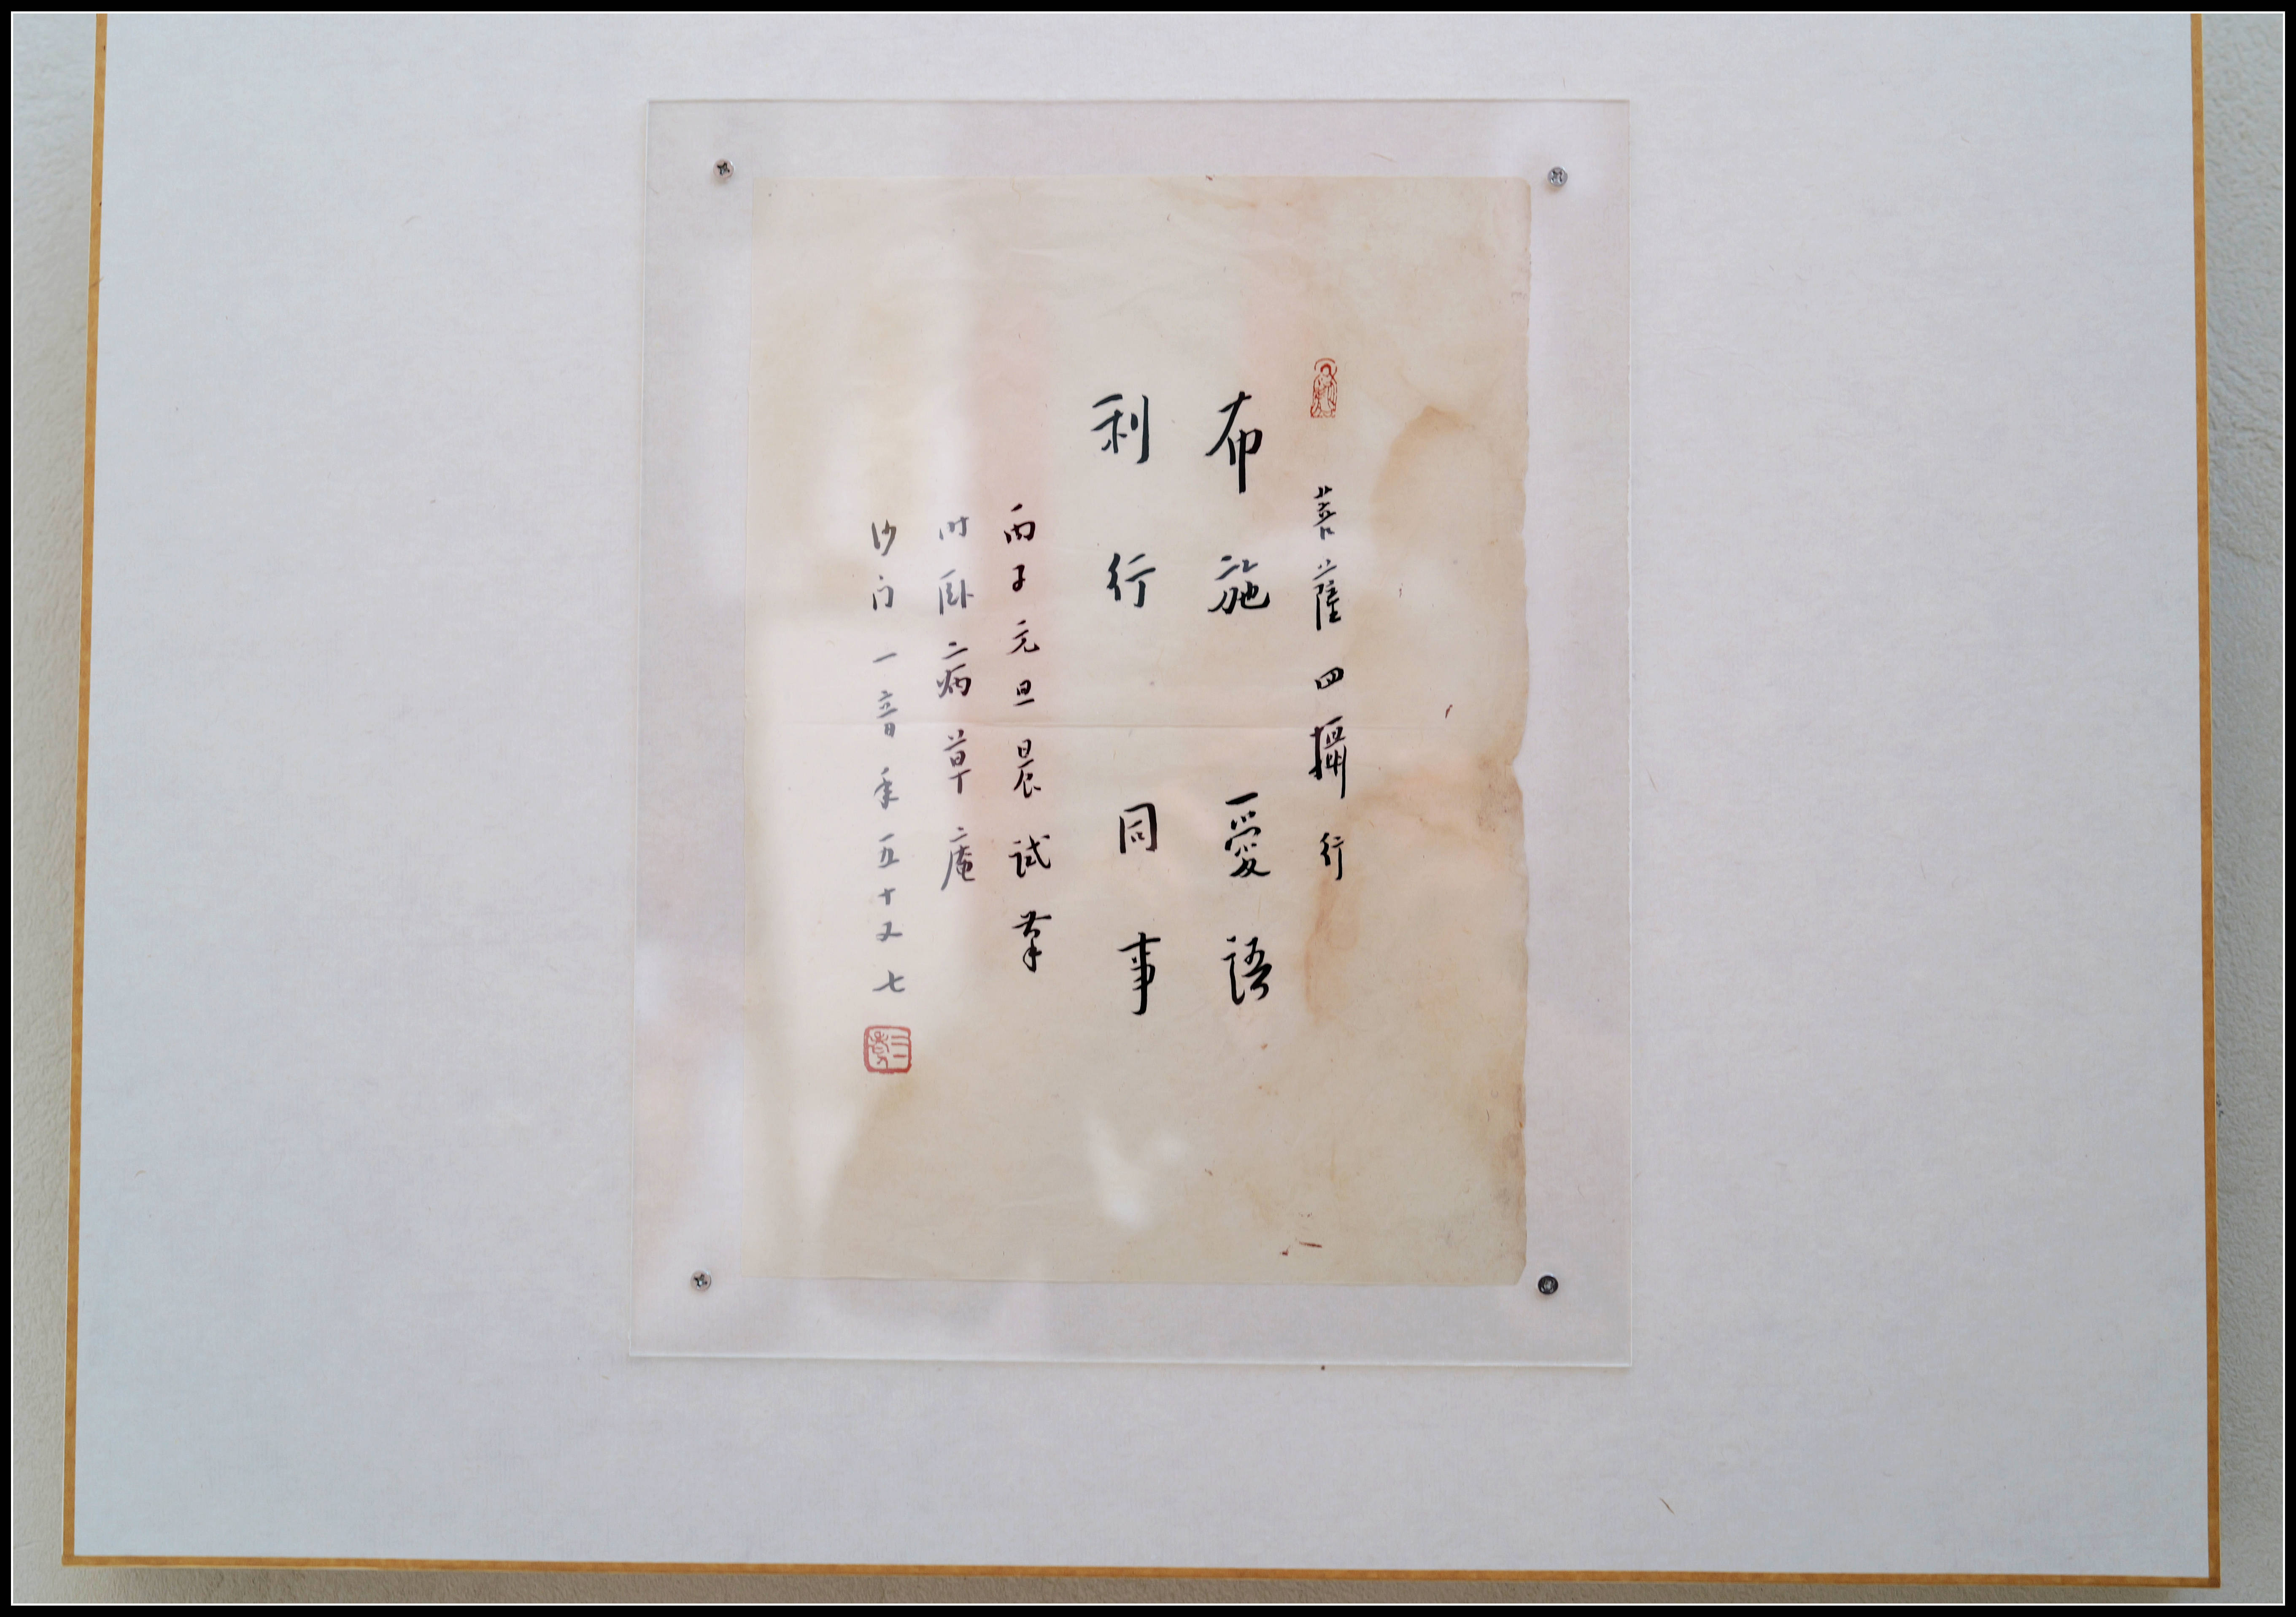 菩薩四攝行
布施 愛語
利行 同事
丙子元旦晨試筆
時臥病草庵
沙门一音年五十又七